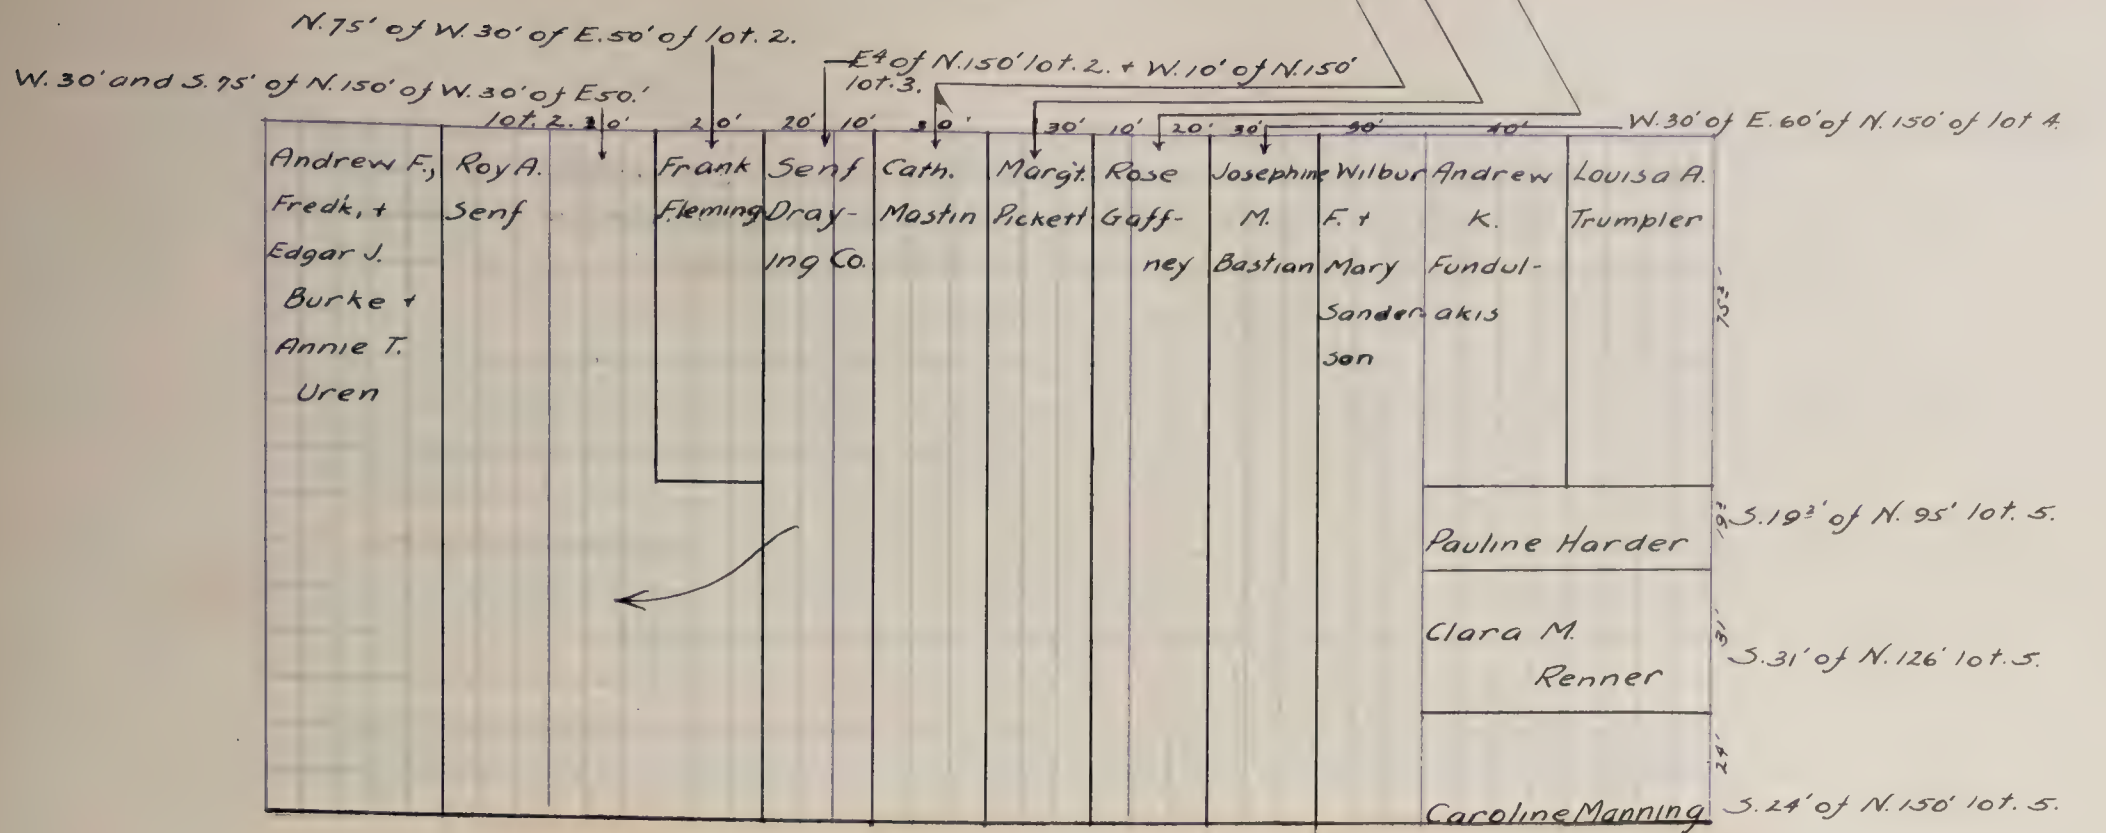 N.75' of W.30' of E.50' of lot.2.
W.30' and S.75' of N.150' of W.30' of E50.'
lot.2.
E4 of N.150' lot.2. + W.10' of N.150'
lot.3.
W.30' of E.60' of N.150' of lot 4.
20' 10'
30'
10' 20' 30'
40'
Andrew F.,
Fredk, +
Edgar J.
Burke +
Annie T.
Uren
Roy A.
Senf
Frank
Fleming
Senf
Dray-
ing Co.
Cath.
Mastin
Margt.
Pickett
Rose
Gaff-
ney
Josephine
M.
Bastian
Wilbur
F. +
Mary
Sander
son
Andrew
K.
Fundul-
akis
Louisa A.
Trumpler
Pauline Harder
S.19² of N.95' lot.5.
31'
Clara M.
Renner
S.31' of N.126' lot.5.
24'
Caroline Manning
S.24' of N.150' lot.5.